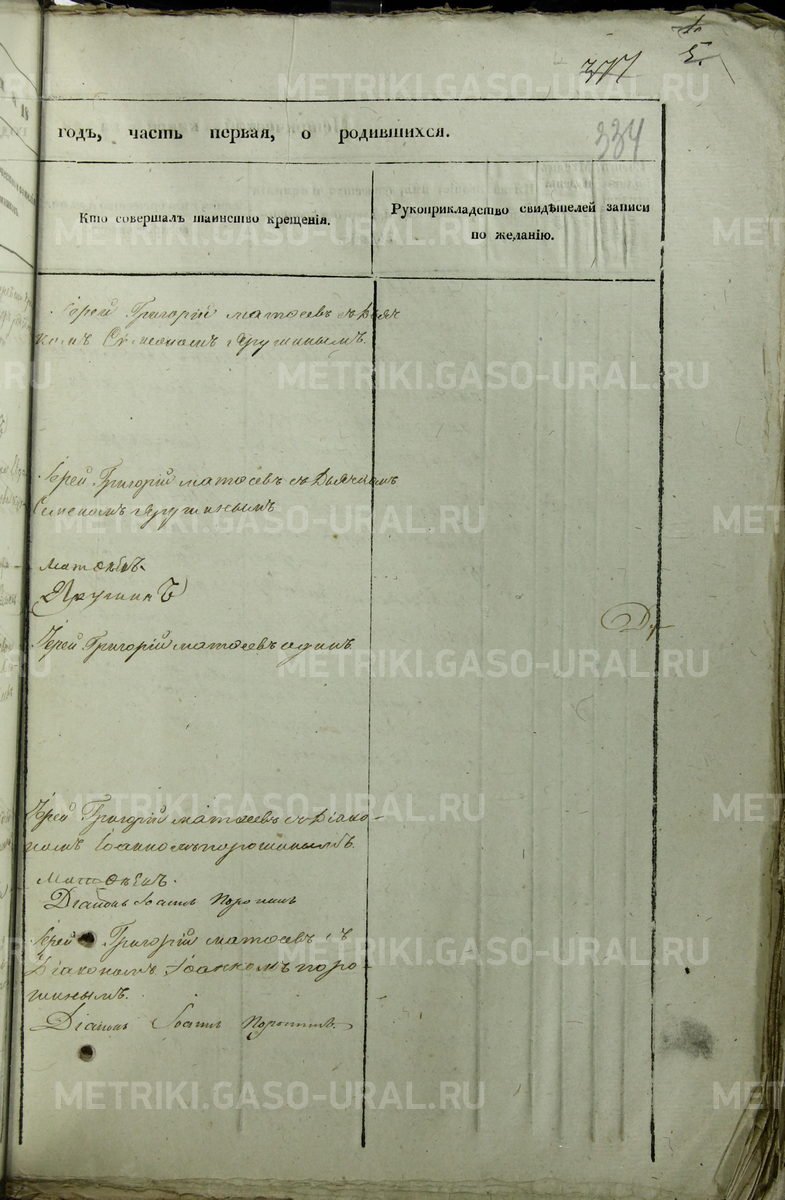 377
5.
334
годъ, часть первая, о родившихся.
Кто совершалъ таинство крещенія.
Рукоприкладство свидѣтелей записи
по желанію.
Іерей Григорій матѳеевъ съ Дьяч
комъ Сѵмеономъ Яругинымъ.
Іерей Григорій матѳеевъ съ Дьячкомъ
Семеномъ Яругинымъ
Матѳѣевъ.
Яругинъ
Іерей Григорій матѳеевъ единъ
Іерей Григорій матѳеевъ съ Діако-
номъ Іоанномъ порошинымъ.
Матѳѣевъ.
Діаконъ Іоаннъ Порошинъ
Іерей Григорій матѳеевъ съ
Діакономъ Іоанномъ поро-
шинымъ.
Діаконъ Іоаннъ Порошинъ
METRIKI.GASO-URAL.RU